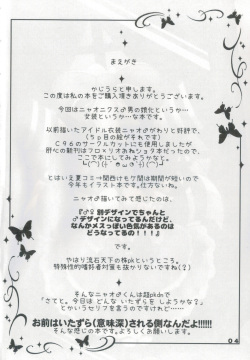 まえがき
かじうらと申します。
この度は私の本をご購入頂きありがとうございます。
今回はニャオニクス♂男の娘化というか…
女装というか…な本です。
以前描いたアイドル衣装ニャオ♂がわりと好評で、
(5p目の絵がそれです)
C96のサークルカットにも使用しましたが
肝心の新刊はフロ×リオおねショタ本だったので、
ここで本にしてみようかなと。
とはいえ夏コミ→関西けもケ間は期間が短いので
今年もイラスト本です。仕方ないね。
ニャオ♂描いてみて感じたのは、
『♂♀別デザインでちゃんと
♂デザインになってるんだけど、
なんかメスっぽい色気があるのは
どうなってるの!!!』
です。
やはり流石天下の株pkというところで、
特殊性的嗜好者対策も抜かりないですね(?)
そんなニャオ♂くんは超pkdxで
「さてと。今日は どんな いたずらを しようかな?」
というセリフを言うのですけれど、
お前はいたずら(意味深)される側なんだよ!!!!!!
そんな感じの本です。よろしくお願いします。
04